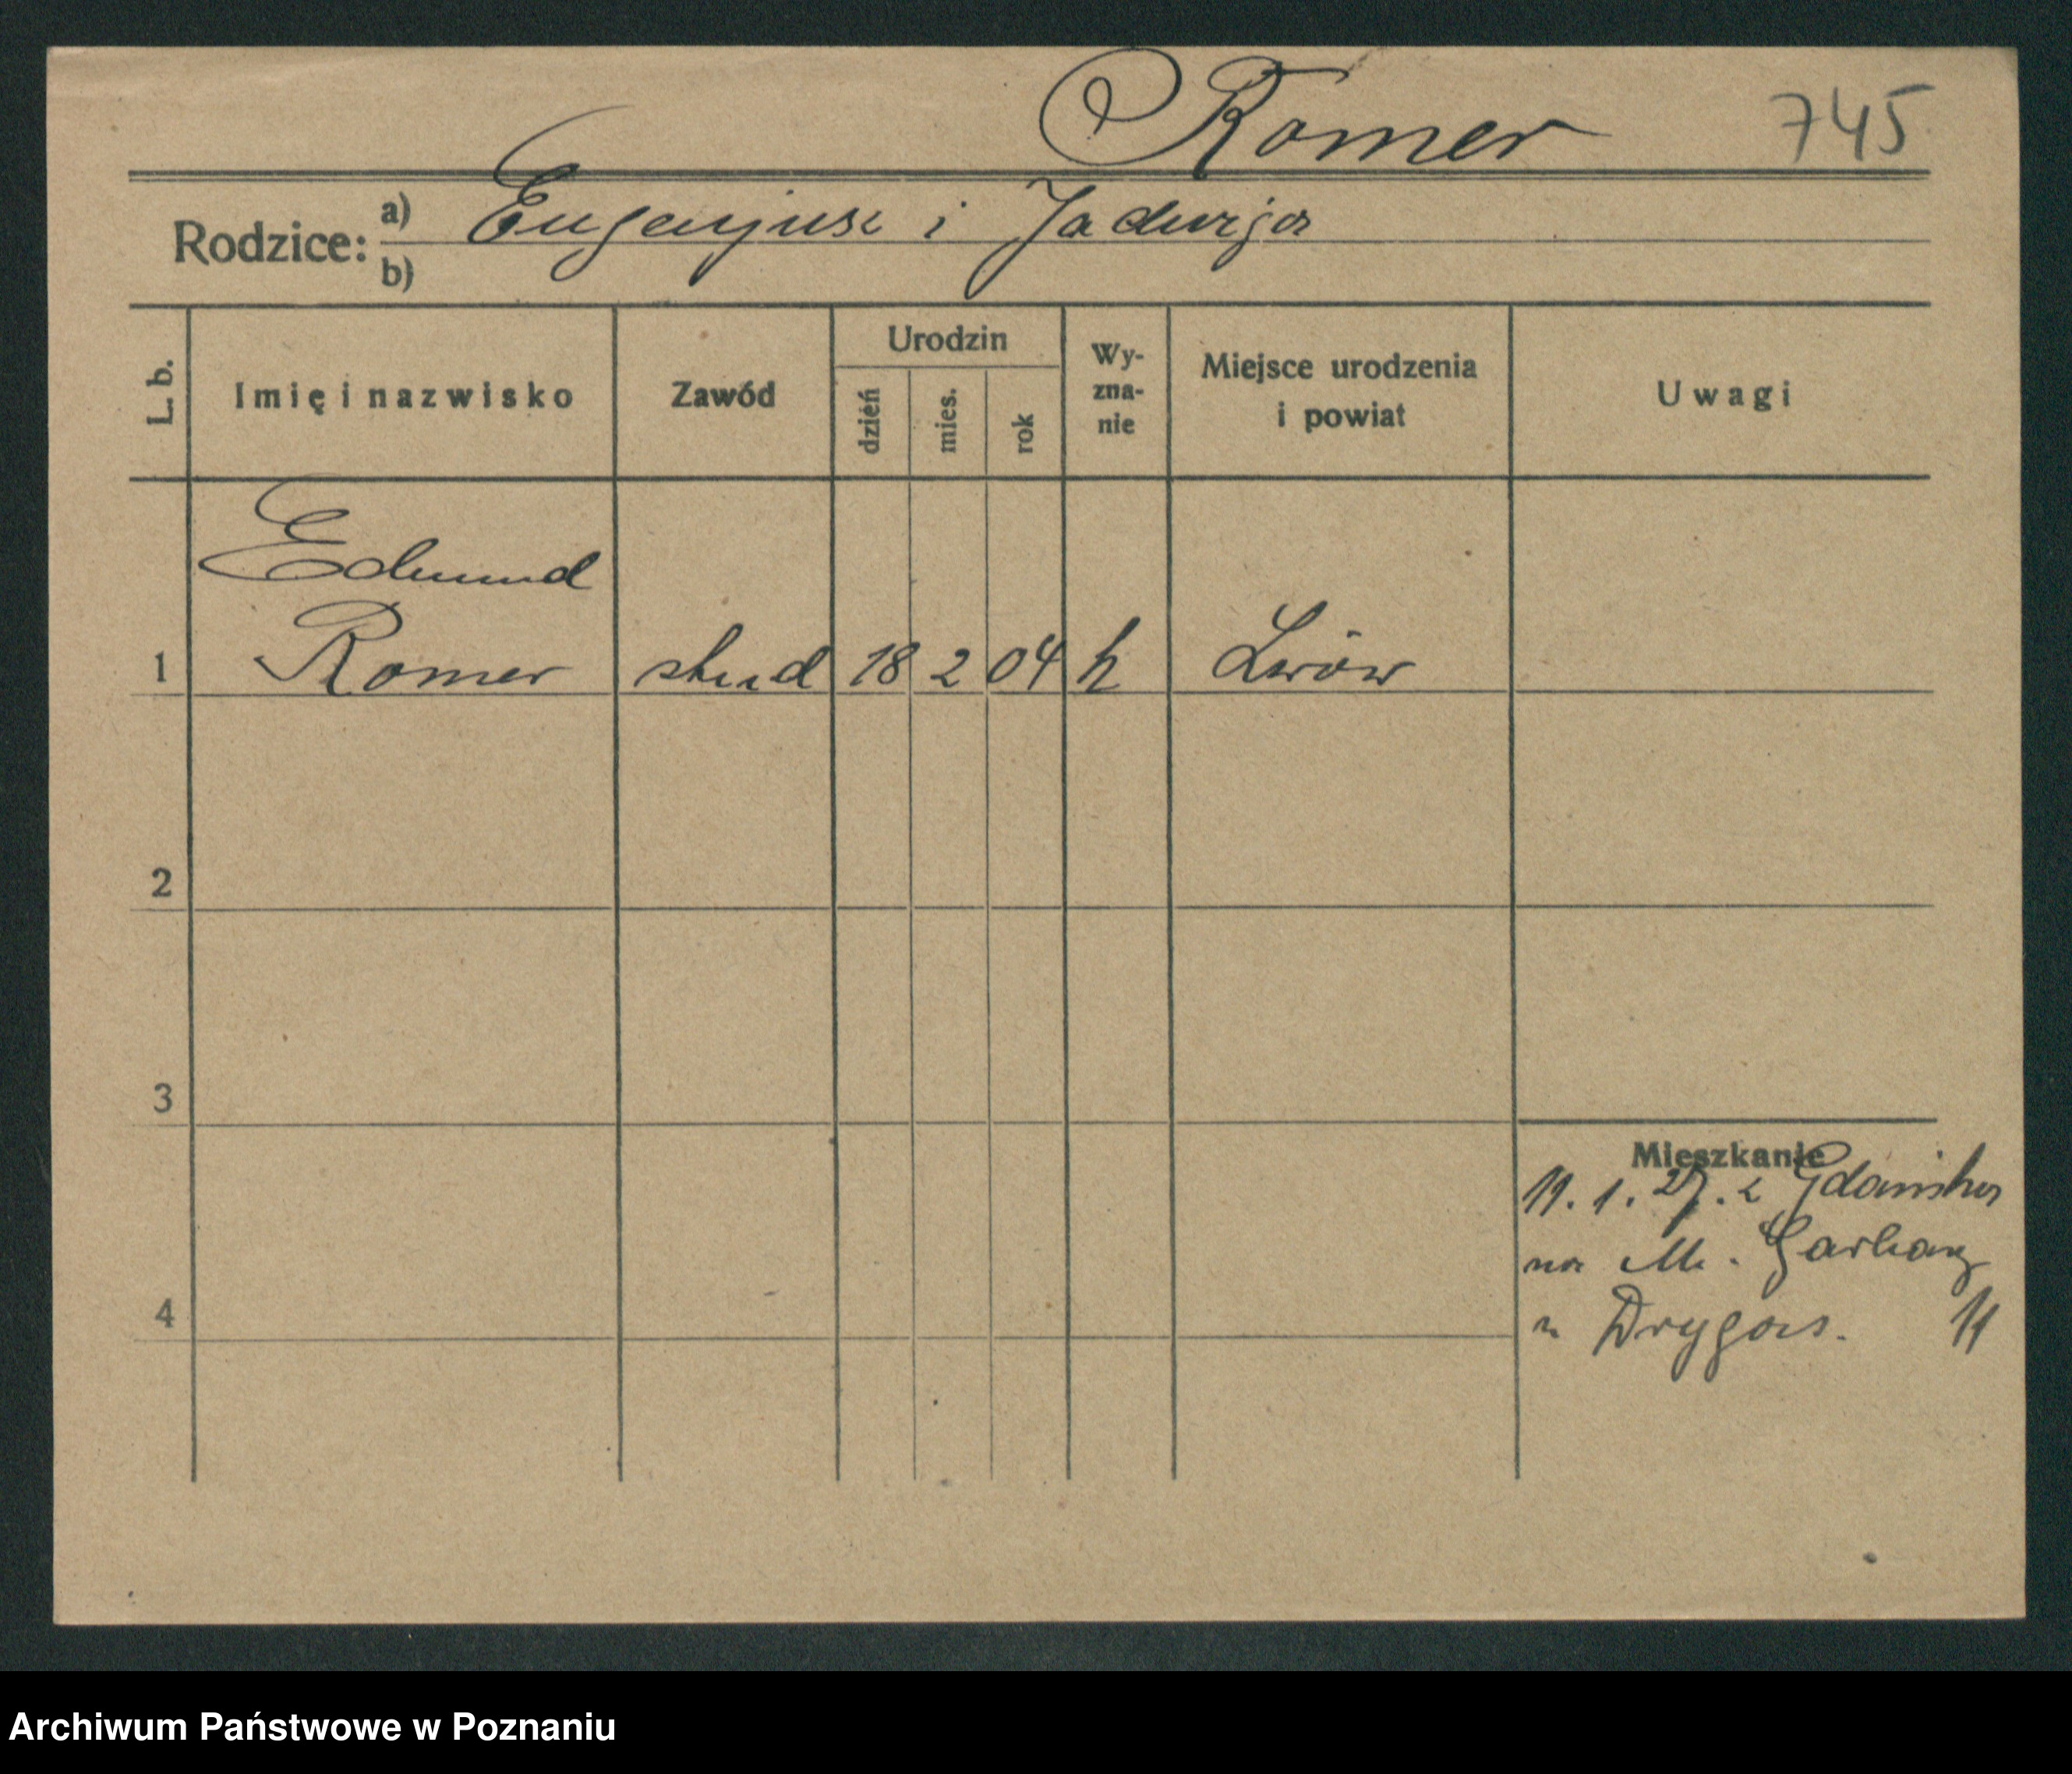 Romer 745
Rodzice: a) Eugenjusz i Jadwiga
b)
L. b. Imię i nazwisko Zawód Urodzin dzień mies. rok Wy-zna-nie Miejsce urodzenia i powiat Uwagi
Edmund
1 Romer stud 18 2 04 k Lwów
2
3
Mieszkanie
11. 1. 27. z Gdańska
4 na M. Garbary
u Drygas. 11
Archiwum Państwowe w Poznaniu